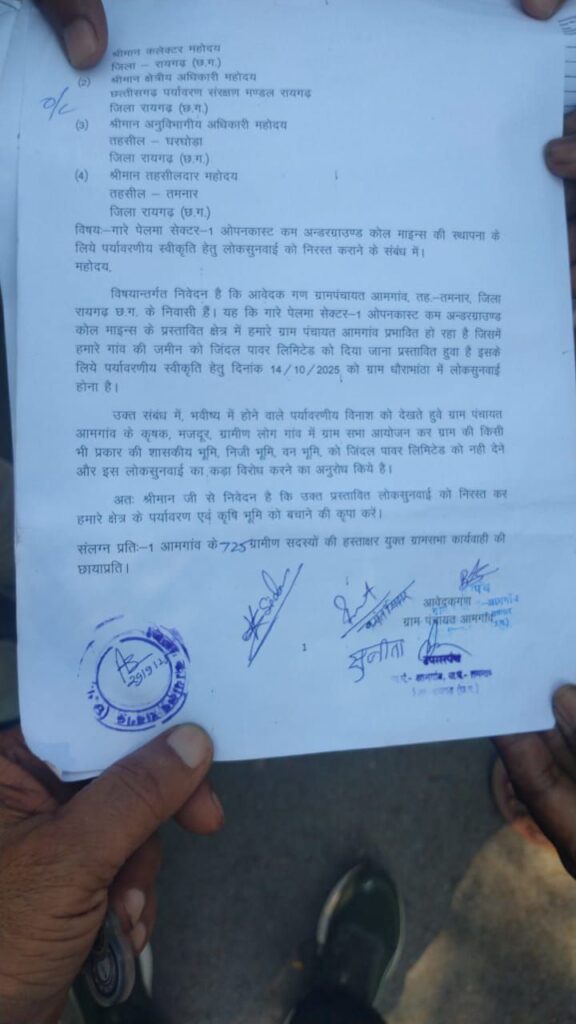 श्रीमान कलेक्टर महोदय
जिला – रायगढ़ (छ.ग.)
(2) श्रीमान क्षेत्रीय अधिकारी महोदय
O/C
छत्तीसगढ़ पर्यावरण संरक्षण मण्डल रायगढ़
जिला रायगढ़ (छ.ग.)
(3) श्रीमान अनुविभागीय अधिकारी महोदय
तहसील – घरघोड़ा
जिला रायगढ़ (छ.ग.)
(4) श्रीमान तहसीलदार महोदय
तहसील – तमनार
जिला रायगढ़ (छ.ग.)
विषयः–गारे पेलमा सेक्टर–1 ओपनकास्ट कम अन्डरग्राउण्ड कोल माइन्स की स्थापना के
लिये पर्यावरणीय स्वीकृति हेतु लोकसुनवाई को निरस्त कराने के संबंध में।
महोदय,
विषयान्तर्गत निवेदन है कि आवेदक गण ग्रामपंचायत आमगांव, तह.–तमनार, जिला
रायगढ़ छ.ग. के निवासी हैं। यह कि गारे पेलमा सेक्टर–1 ओपनकास्ट कम अन्डरग्राउण्ड
कोल माइन्स के प्रस्तावित क्षेत्र में हमारे ग्राम पंचायत आमगांव प्रभावित हो रहा है जिसमें
हमारे गांव की जमीन को जिंदल पावर लिमिटेड को दिया जाना प्रस्तावित हुवा है इसके
लिये पर्यावरणीय स्वीकृति हेतु दिनांक 14/10/2025 को ग्राम धौराभांठा में लोकसुनवाई
होना है।
उक्त संबंध में, भवीष्य में होने वाले पर्यावरणीय विनाश को देखते हुवे ग्राम पंचायत
आमगांव के कृषक, मजदूर, ग्रामीण लोग गांव में ग्राम सभा आयोजन कर ग्राम की किसी
भी प्रकार की शासकीय भूमि, निजी भूमि, वन भूमि, को जिंदल पावर लिमिटेड को नही देने
और इस लोकसुनवाई का कड़ा विरोध करने का अनुरोध किये है।
अतः श्रीमान जी से निवेदन है कि उक्त प्रस्तावित लोकसुनवाई को निरस्त कर
हमारे क्षेत्र के पर्यावरण एवं कृषि भूमि को बचाने की कृपा करें।
संलग्न प्रतिः–1 आमगांव के 725 ग्रामीण सदस्यों की हस्ताक्षर युक्त ग्रामसभा कार्यवाही की
छायाप्रति।
पंच
आवेदकगण
ग्राम पंचायत आमगांव
सुनीता
1
उपसरपंच
29/9/25
रायगढ़